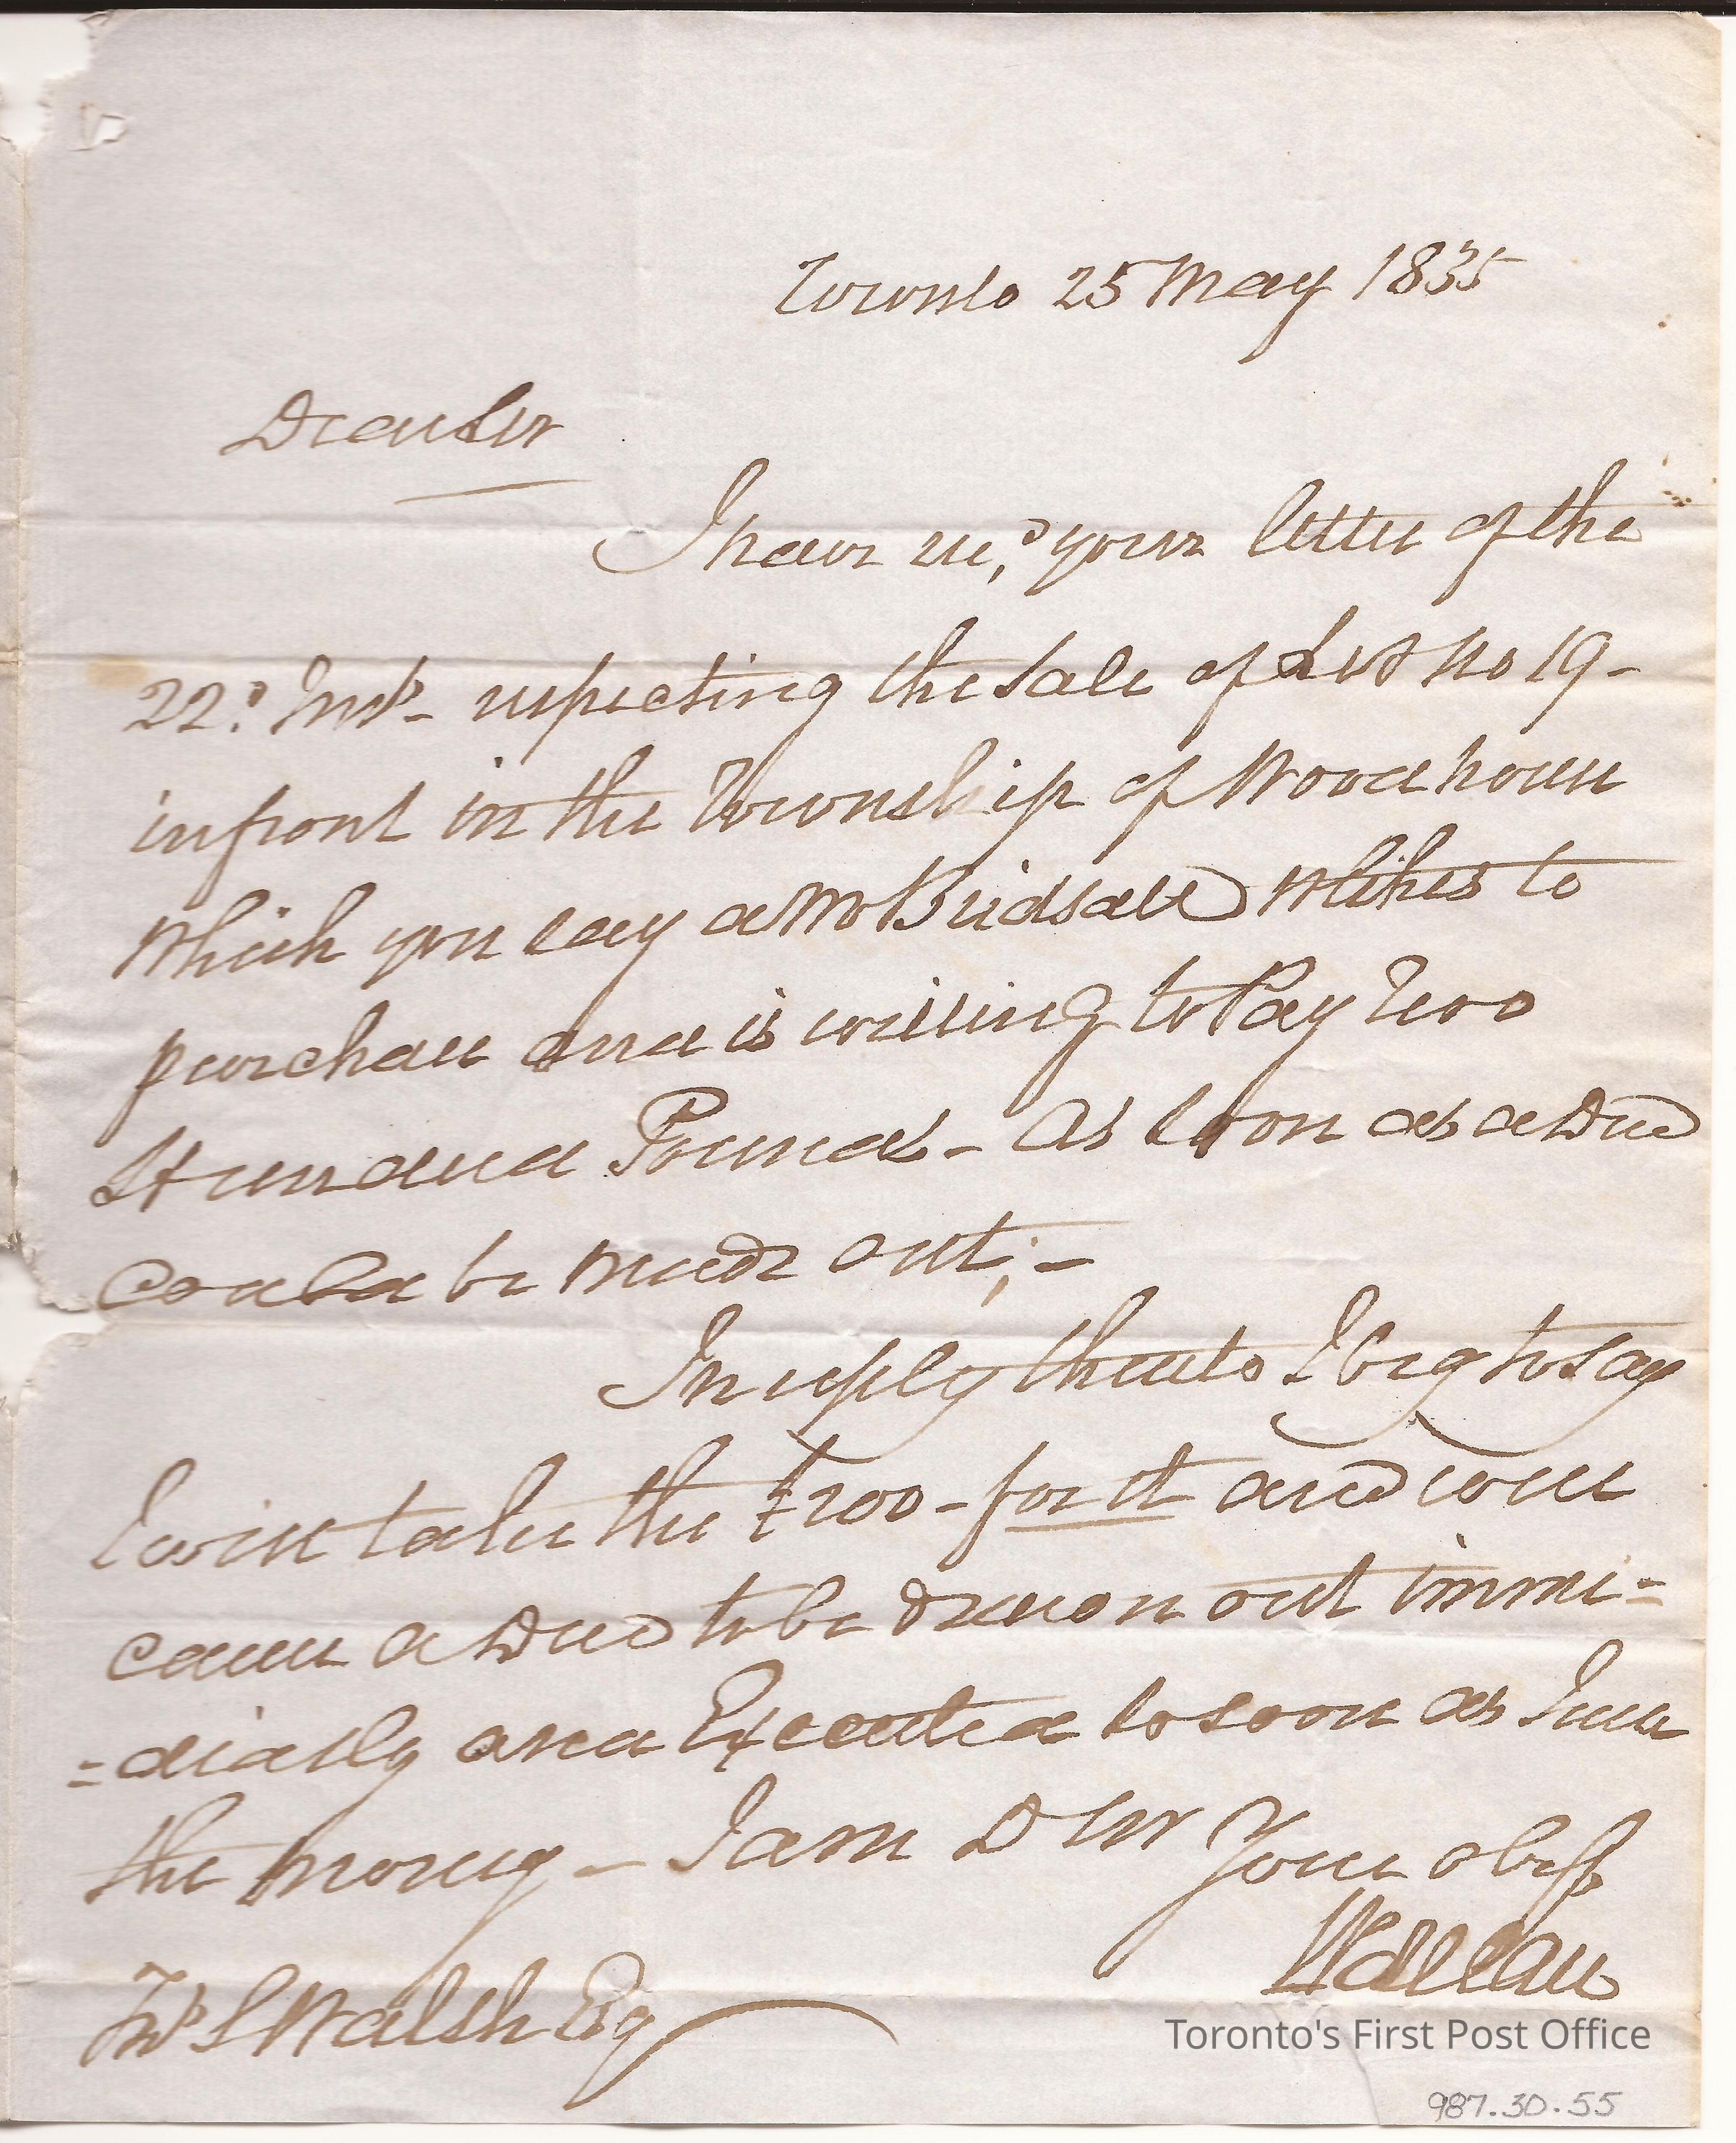 Toronto 25 May 1835
Dear Sir
I have recd your letter of the
22d Inst - respecting the sale of Lot no 19 -
infront in the Township of Woodhouse
which you say a Mr Birdsall wishes to
purchase and is willing to Pay Two
Hundred Pounds - as soon as a Deed
could be made out; -
In reply thereto I beg to say
I will take the £200 - for it and will
cause a Deed to be drawn out imme=
=diatly and Executed so soon as I
the money - I am D Sir Your obt
W Allan
Fs L Walsh Esq
Toronto's First Post Office
987.30.55